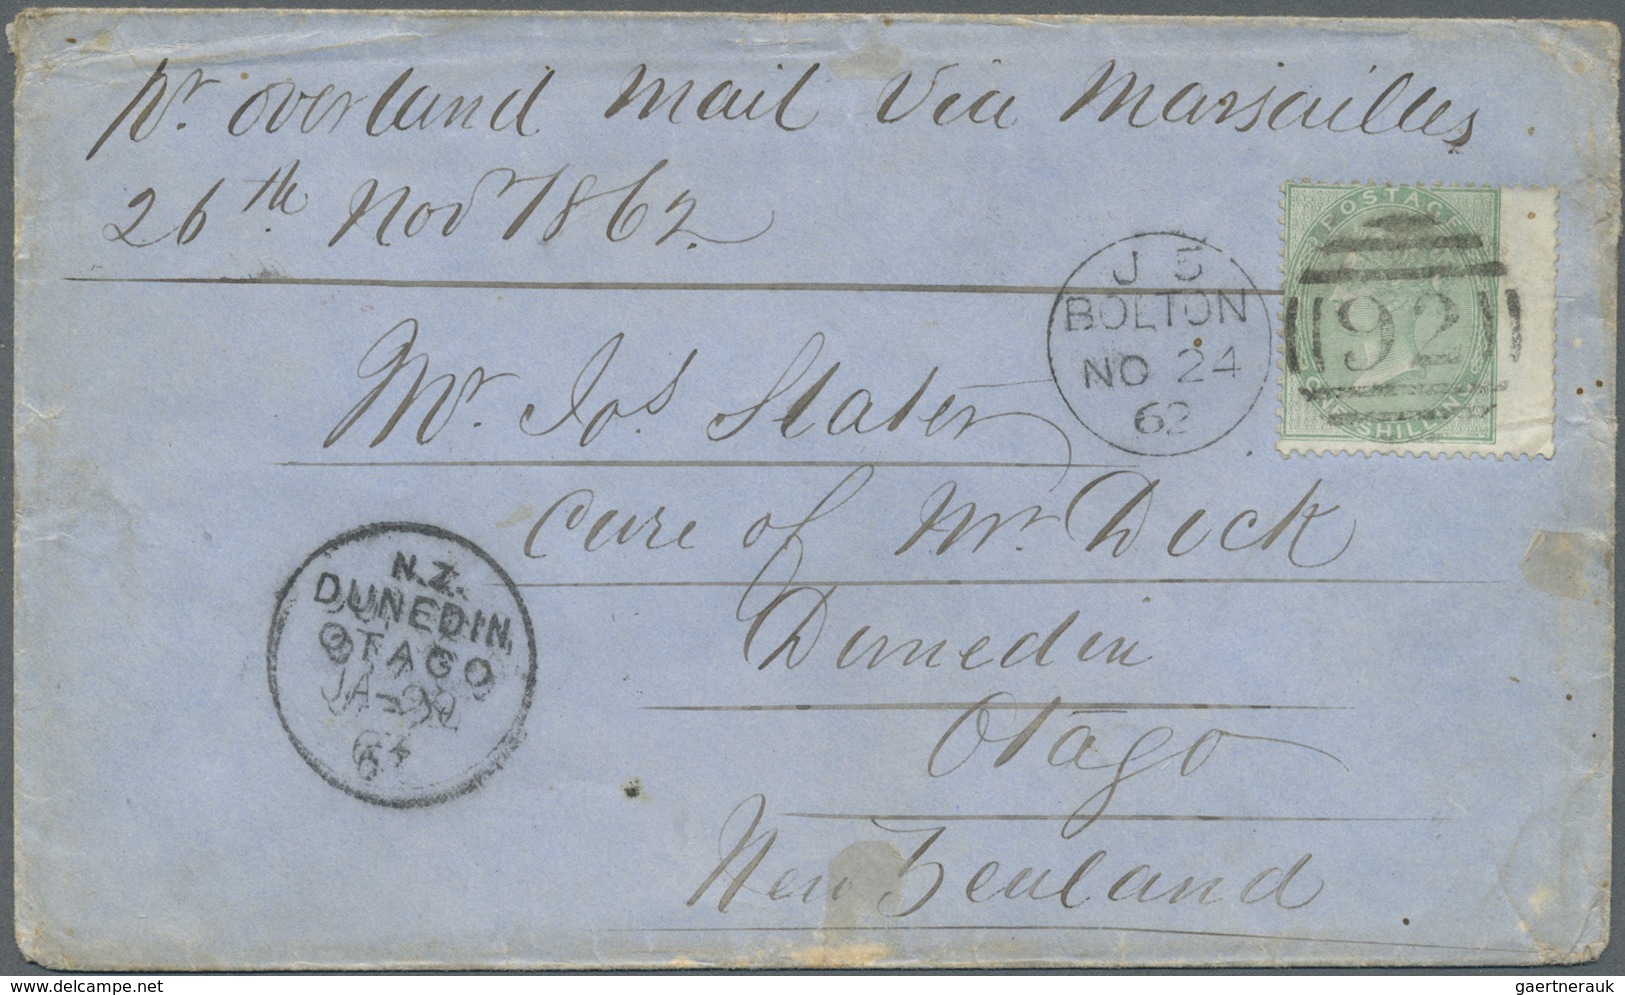 pr. overland mail via Marsailles
26th Novr 1862.
POSTAGE
SHILLING
92
J 5
BOLTON
NO 24
62
Mr. Jos Slater
care of Mr. Dick
Dunedin
Otago
New Zealand
N.Z.
DUNEDIN
OTAGO
JA
63
gaertnerauk